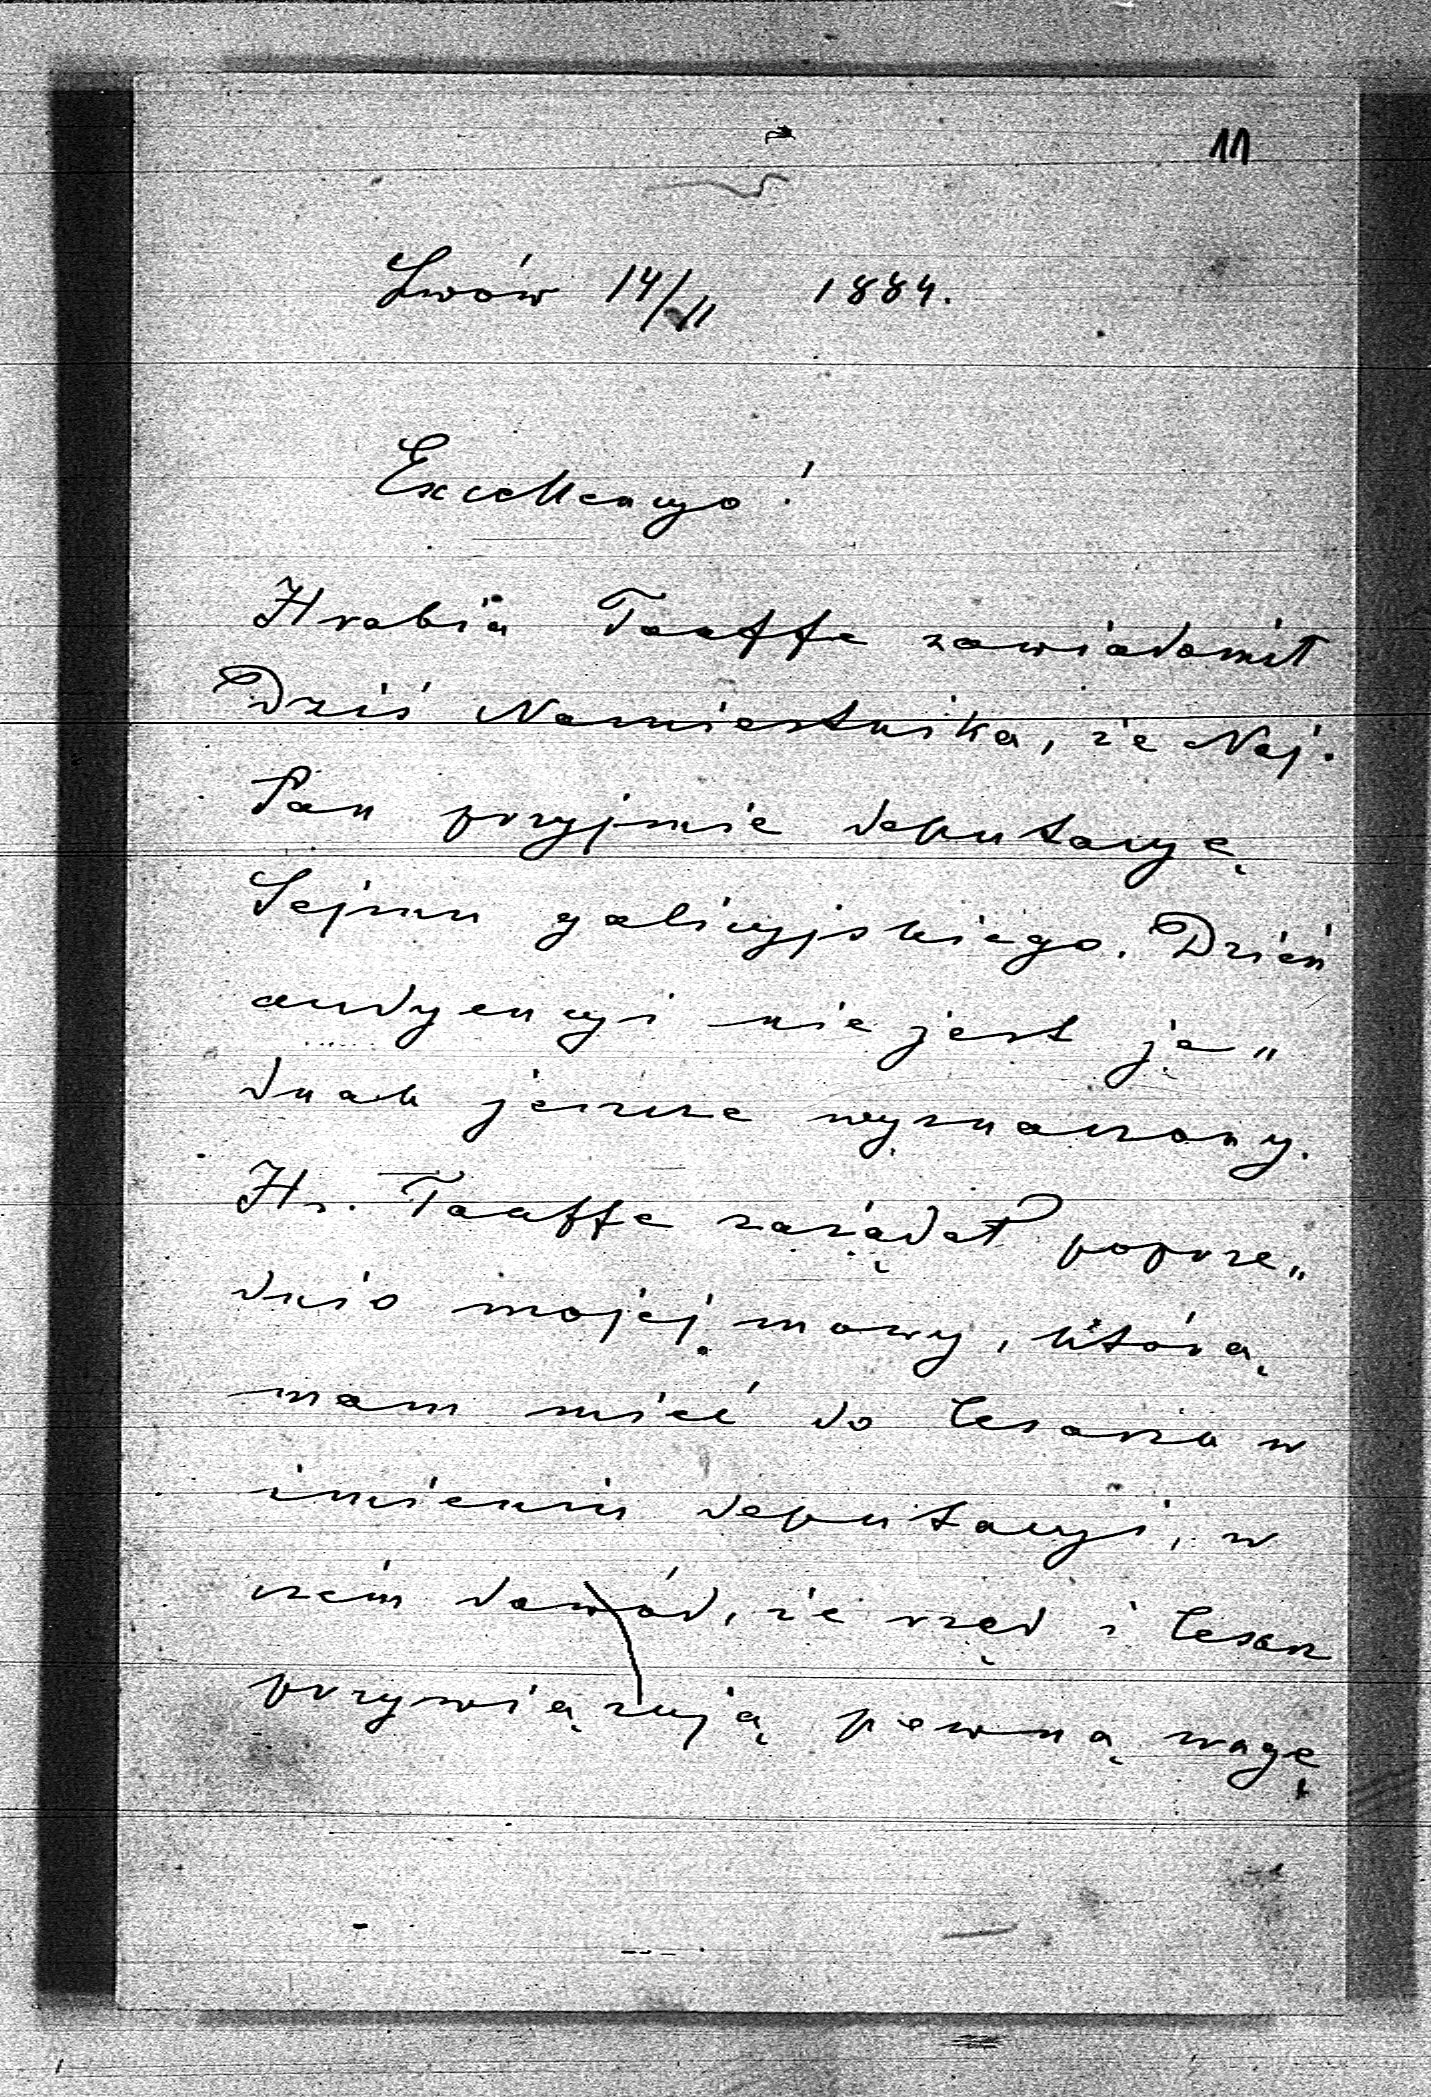 11
Lwów 14/11 1884.
Excellencyo!
Hrabia Taaffe zawiadomił
Dziś Namiestnika, że Naj.
Pan przyjmie deputacyę
Sejmu galicyjskiego. Dzień
audyencyi nie jest je„
dnak jeszcze wyznaczony.
Hr. Taaffe zażądał poprze„
dnio mojej mowy, którą
mam mieć do Cesarza w
imieniu deputacyi, w
czém dowód, że rząd i Cesarz
przywiązują pewną wagę